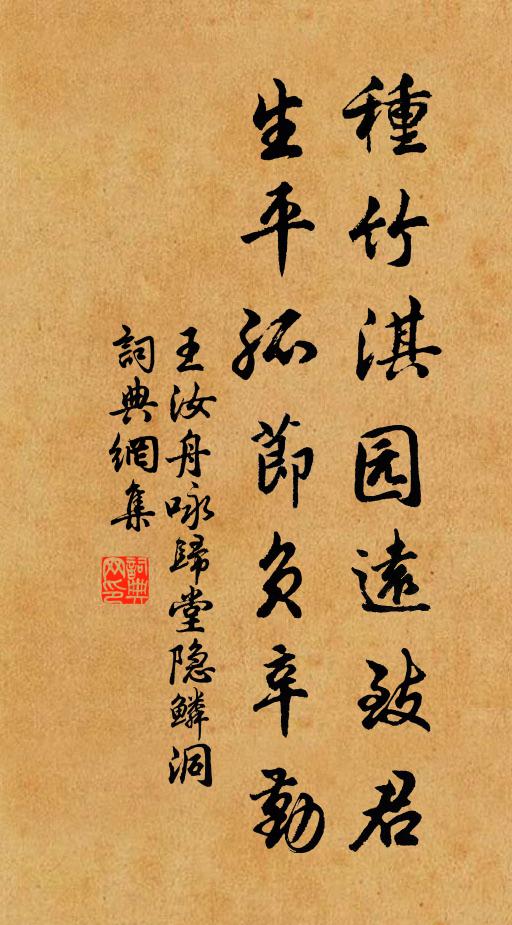 種竹淇园遠致君
生平孤節負辛勤
王汝舟咏歸堂隐鳞洞
詞典網集
詞典网印